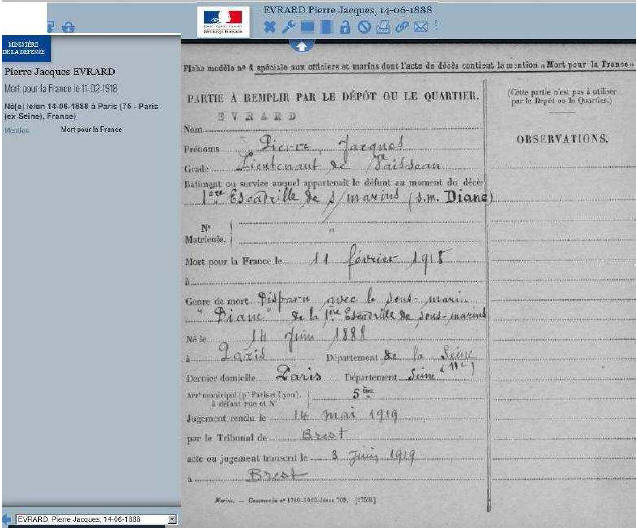 EVRARD Pierre Jacques, 14-06-1888
MINISTÈRE
DE LA DEFENSE
Pierre Jacques EVRARD
Mort pour la France le 11-02-1918
Né(e) le/en 14-06-1888 à Paris (75 - Paris
(ex Seine), France)
Mention Mort pour la France
Fiche modèle n° 4 spéciale aux officiers et marins dont l'acte de décès contient la mention « Mort pour la France »
PARTIE À REMPLIR PAR LE DÉPÔT OU LE QUARTIER.
(Cette partie n'est pas à utiliser
par le Dépôt ou le Quartier.)
OBSERVATIONS.
EVRARD
Nom
Prénoms Pierre Jacques
Grade Lieutenant de Vaisseau
Bâtiment ou service auquel appartenait le défunt au moment du décès
1ère Escadrille de s/marins (s.m. Diane)
N°
Matricule.
"
Mort pour la France le 11 février 1918
à
Genre de mort Disparu avec le sous-marin
"Diane" de la 1ère Escadrille de sous-marins
Né le 14 Juin 1888
à Paris Département de la Seine
Dernier domicile Paris Département Seine
Arrt municipal (pr Paris et Lyon),
à défaut rue et N° 5ème
Jugement rendu le 14 mai 1919
par le Tribunal de Brest
acte ou jugement transcrit le 3 Juin 1919
à Brest
EVRARD, Pierre Jacques, 14-06-1888